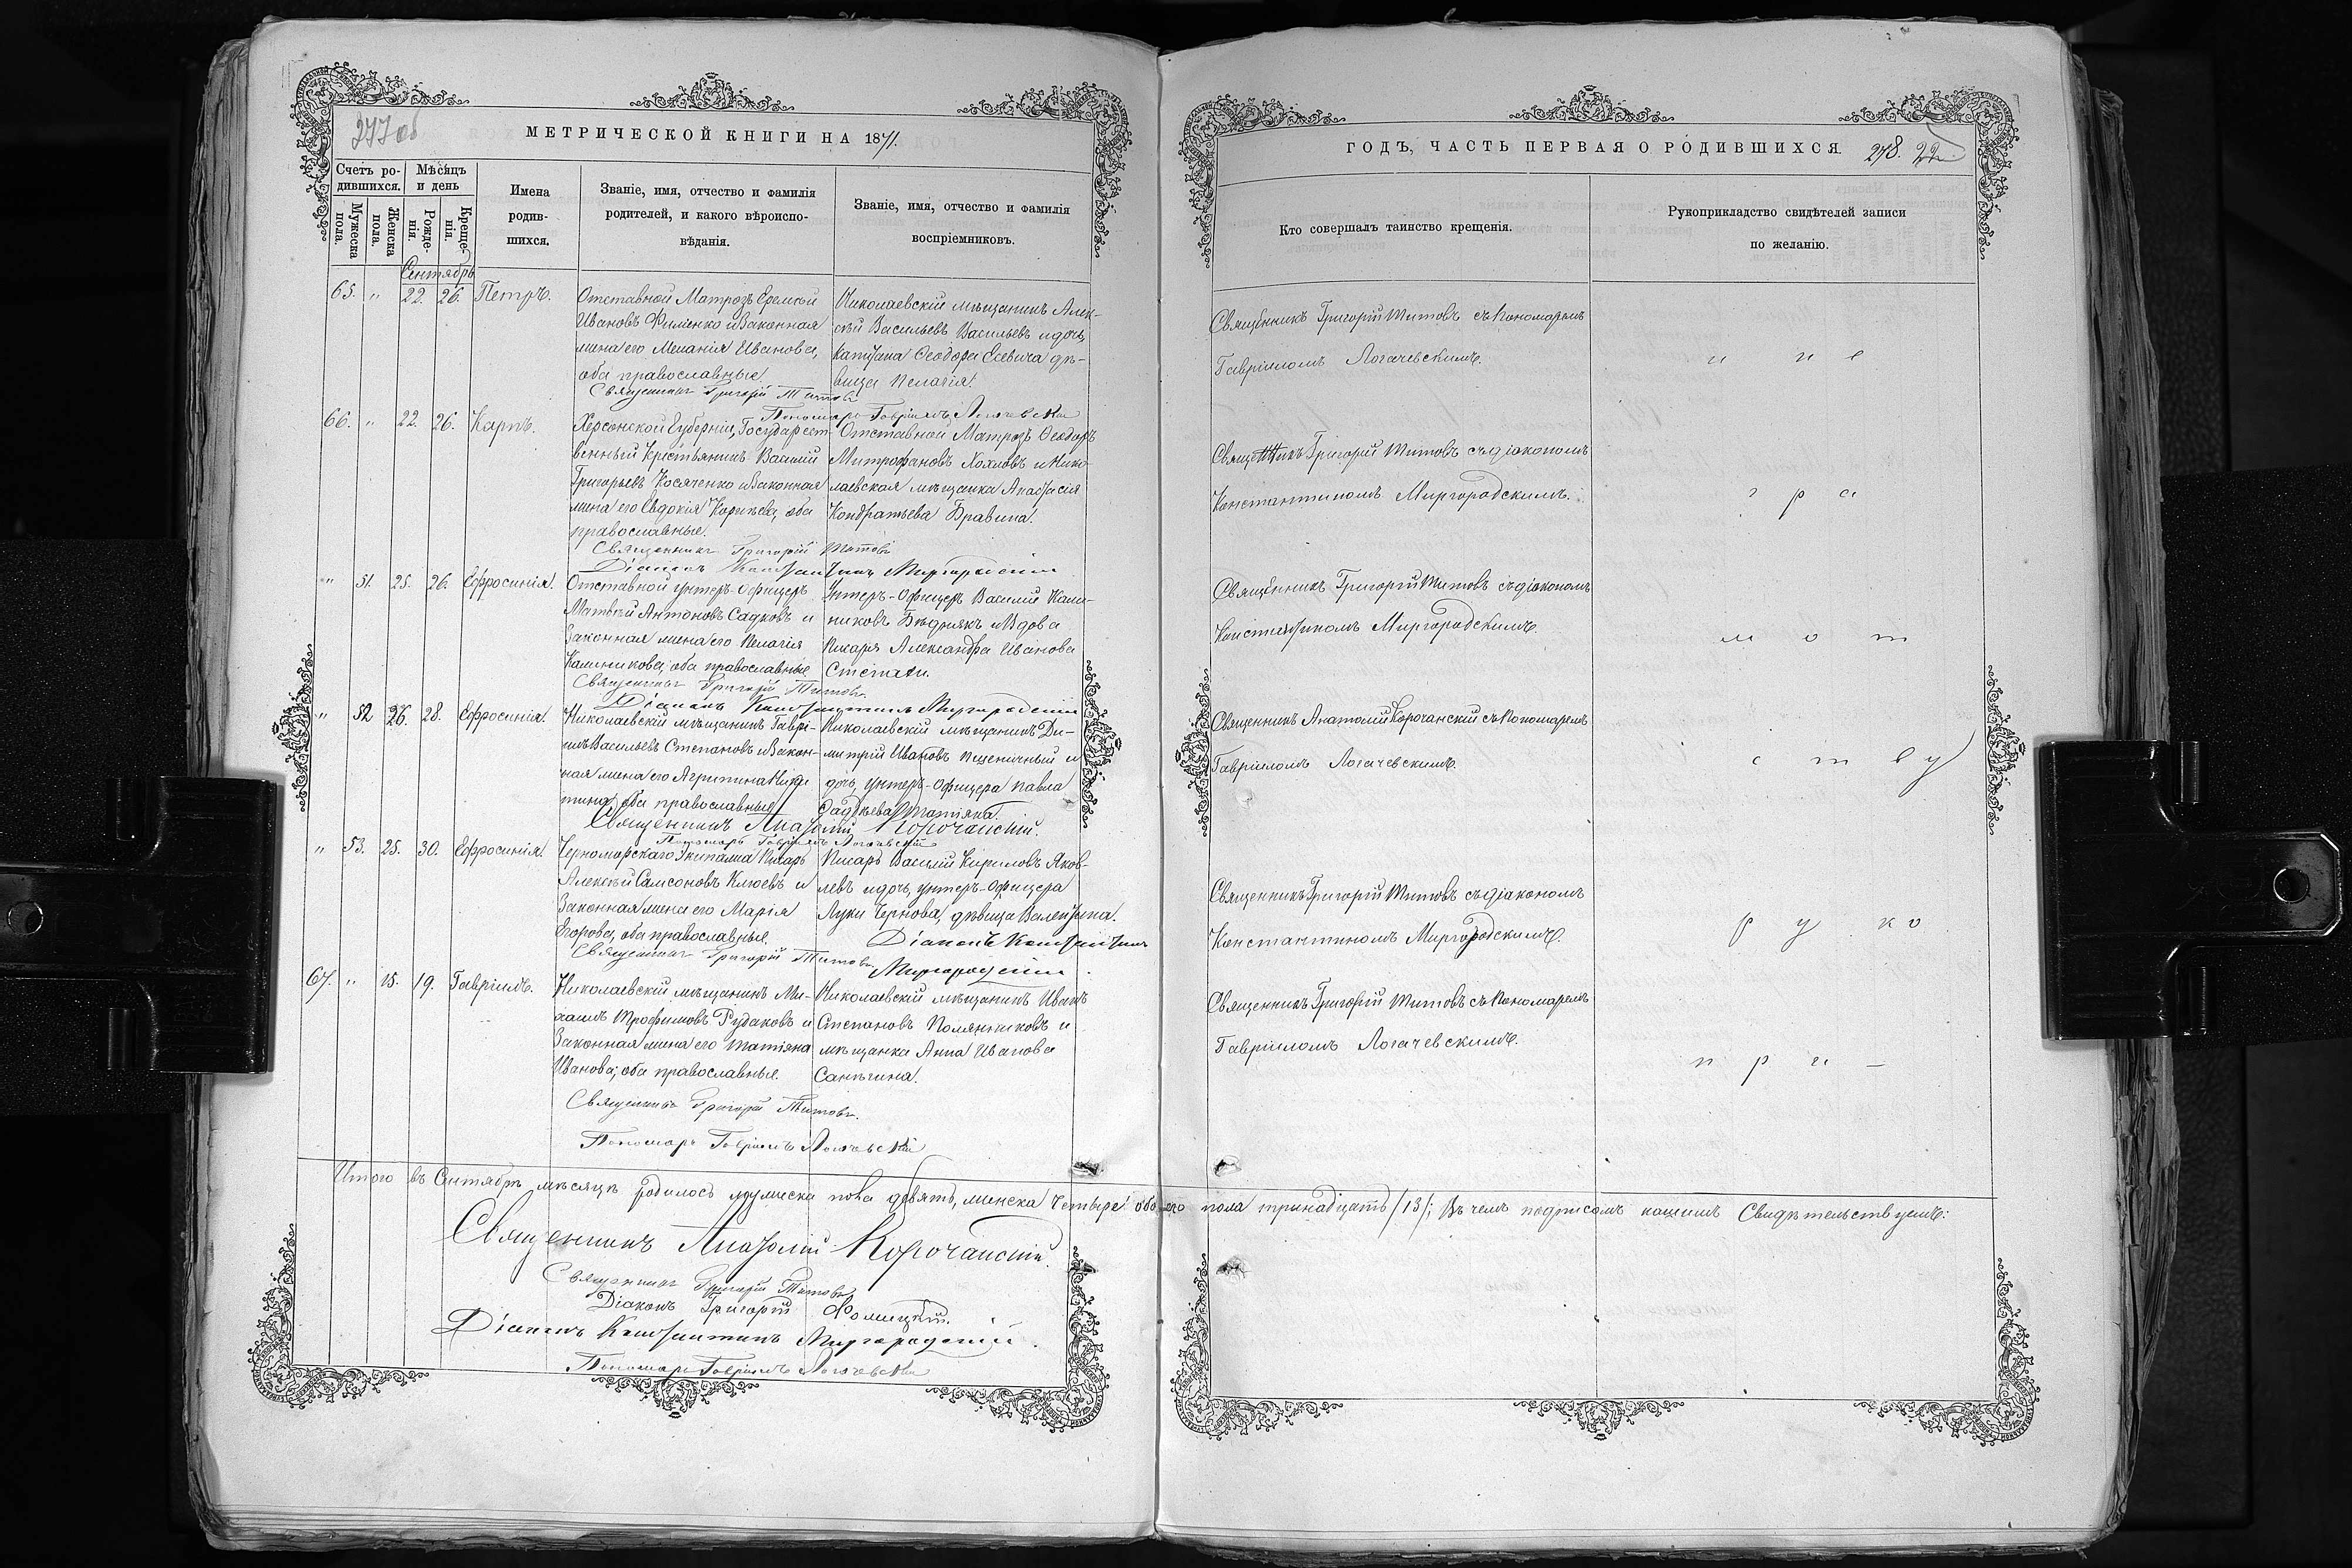 277 об
МЕТРИЧЕСКОЙ КНИГИ НА 1871.
Счетъ ро-
дившихся.
Мужеска
пола.
Женска
пола.
Мѣсяцъ
и день
Рожде-
нія.
Креще-
нія.
Имена
родив-
шихся.
Званіе, имя, отчество и фамилія
родителей, и какого вѣроиспо-
вѣданія.
Званіе, имя, отчество и фамилія
воспріемниковъ.
Сентябрь
65. " 22. 26. Петръ.
Отставной Матрозъ Еремѣй
Ивановъ Филенко и Законная
жена его Меланія Иванова,
оба православные
Николаевскій мѣщанинъ Алек-
сѣй Васильевъ Васильевъ и дочь
Капитана Ѳеодора Есевича дѣ-
вица Пелагія.
Священникъ Григорій Титовъ
Пономарь Гавріилъ Логачевскій
66. " 22. 26. Карпъ.
Херсонской Губерніи, Государст-
венный Крестьянинъ Василій
Григорьевъ Косяченко и Законная
жена его Евдокія Корнѣева, оба
православные.
Отставной Матрозъ Ѳеодоръ
Митрофановъ Хохловъ и Нико-
лаевская мѣщанка Анастасія
Кондратьева Бравина.
Священникъ Григорій Титовъ
Діаконъ Константинъ Миргородскій
" 51. 25. 26. Ефросинія.
Отставной унтеръ-офицеръ
Матвѣй Антоновъ Садковъ и
Законная жена его Пелагія
Калиникова, оба православные
Унтеръ-офицеръ Василій Кали-
никовъ Бѣднякъ и Вдова
Писаря Александра Иванова
Священникъ Григорій Титовъ.
Діаконъ Константинъ Миргородскій
" 52 26. 28. Ефросинія.
Николаевскій мѣщанинъ Гаврі-
илъ Васильевъ Степановъ и Закон-
ная жена его Агрипина Ники-
тина, оба православные
Николаевскій мѣщанинъ Ди-
митрій Ивановъ Пшеничный и
дочь унтеръ-офицера Павла
Фадѣева Татіяна.
Священникъ Анатолій Корочанскій.
Пономарь Гавріилъ Логачевскій
" 53. 25. 30. Ефросинія.
Черноморскаго Экипажа Писарь
Алексѣй Самсоновъ Клюевъ и
Законная жена его Марія
Егорова, оба православные.
Писарь Василій Кириловъ Яков-
левъ и дочь унтеръ-офицера
Луки Чернова, дѣвица Валентина.
Священникъ Григорій Титовъ
Діаконъ Константинъ
Миргородскій
67. " 15. 19. Гавріилъ.
Николаевскій мѣщанинъ Ми-
хаилъ Трофимовъ Рудаковъ и
Законная жена его Татіяна
Иванова, оба православные.
Николаевскій мѣщанинъ Иванъ
Степановъ Полянчиковъ и
мѣщанка Анна Иванова
Санѣгина.
Священникъ Григорій Титовъ.
Пономарь Гавріилъ Логачевскій
Итого въ Сентябрѣ мѣсяцѣ родилось мужеска пола девять, женска четыре обоего пола тринадцать /13/; Въ чемъ подписомъ нашимъ Свидѣтельствуемъ:
Священникъ Анатолій Корочанскій.
Священникъ Григорій Титовъ
Діаконъ Григорій Фомицкій.
Діаконъ Константинъ Миргородскій.
Пономарь Гавріилъ Логачевскій
ГОДЪ, ЧАСТЬ ПЕРВАЯ О РОДИВШИХСЯ. 278. 22
Кто совершалъ таинство крещенія.
Рукоприкладство свидѣтелей записи
по желанію.
Священникъ Григорій Титовъ съ Пономаремъ
Гавріиломъ Логачевскимъ.
и н е
Священникъ Григорій Титовъ съ діакономъ
Константиномъ Миргородскимъ.
г р а
Священникъ Григорій Титовъ съ діакономъ
Константиномъ Миргородскимъ.
м о т
Священникъ Анатолій Корочанскій съ Пономаремъ
Гавріиломъ Логачевскимъ.
с т в у
Священникъ Григорій Титовъ съ діакономъ
Константиномъ Миргородскимъ.
р у к о
Священникъ Григорій Титовъ съ Пономаремъ
Гавріиломъ Логачевскимъ.
п р и -